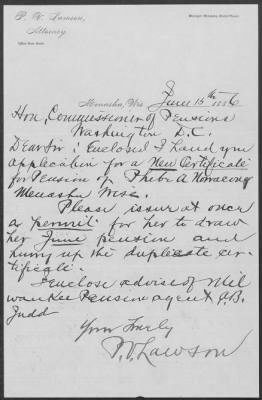 P. V. Lawson,
Attorney
Menasha, Wis
June 15th 1886
Hon. Commissioner of Pensions
Washington D.C.
Dear Sir: Enclosed I hand you
application for a New Certificate
for Pension of Phebe A
Menasha Wisc.
Please issue at once
a permit for her to draw
her June pension and
hurry up the duplicate cer-
tificate.
I enclose advise of Mil
waukee Pension agent
Judd
Yours Truly
P.V. Lawson